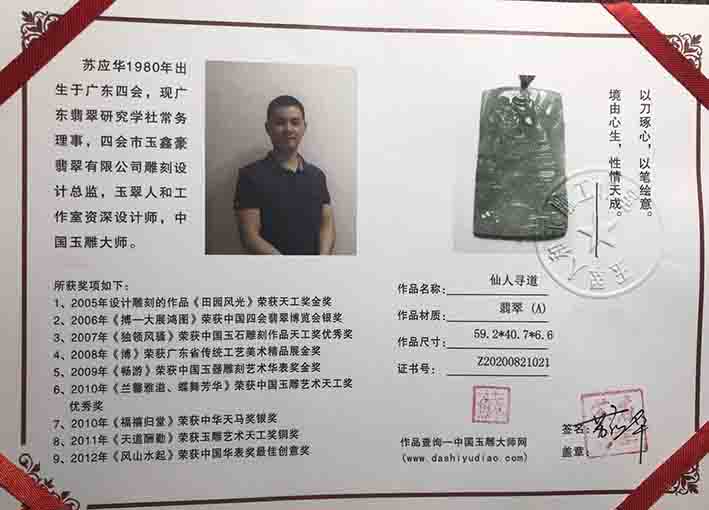 苏应华1980年出
生于广东四会，现广
东翡翠研究学社常务
理事，四会市玉鑫豪
翡翠有限公司雕刻设
计总监，玉翠人和工
作室资深设计师，中
国玉雕大师。
以刀琢心，以笔绘意。
境由心生，性情天成。
所获奖项如下：
1、2005年设计雕刻的作品《田园风光》荣获天工奖金奖
2、2006年《搏一大展鸿图》荣获中国四会翡翠博览会银奖
3、2007年《独领风骚》荣获中国玉石雕刻作品天工奖优秀奖
4、2008年《博》荣获广东省传统工艺美术精品展金奖
5、2009年《畅游》荣获中国玉器雕刻艺术华表奖金奖
6、2010年《兰馨雅道、蝶舞芳华》荣获中国玉雕艺术天工奖
优秀奖
7、2010年《福禧归堂》荣获中华天马奖银奖
8、2011年《天道酬勤》荣获玉雕艺术天工奖铜奖
9、2012年《风山水起》荣获中国华表奖最佳创意奖
作品名称： 仙人寻道
作品材质： 翡翠 (A)
作品尺寸： 59.2*40.7*6.6
证书号： Z20200821021
作品查询一中国玉雕大师网
(www.dashiyudiao.com)
签名：苏应华
盖章：